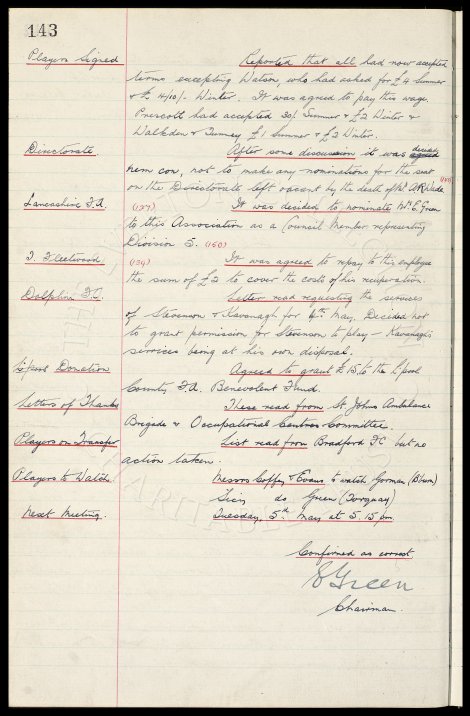 143
Players Signed Reported that all had now accepted
terms excepting Watson, who had asked for £4 Summer
& £ 4/10/- Winter. It was agreed to pay this wage.
Prescott had accepted 30/ Summer & £2 Winter &
Walkden & Tunney £1 Summer & £2 Winter.
Directorate. After some discussion it was decided
nem con, not to make any nominations for the seat
on the Directorate left vacant by the death of Mr A.R. Wade.
Lancashire F.A. (127) It was decided to nominate Mr E. Green
to this Association as a Council Member representing
Division 5. (150)
T. Fleetwood. (134) It was agreed to repay to this employee
the sum of £2 to cover the costs of his recuperation.
Dolphin F.C. Letter read requesting the services
of Stevenson & Kavanagh for 4th May. Decided not
to grant permission for Stevenson to play - Kavanagh's
services being at his own disposal.
L'pool Donation Agreed to grant £15 to the L'pool
County F.A. Benevolent Fund.
Letters of Thanks These read from St Johns Ambulance
Brigade & Occupational Centres Committee.
Players on Transfer List read from Bradford FC but no
action taken.
Players to Watch. Messrs Coffey & Evans to watch Gorman (B'burn)
do Green (Torquay)
Next Meeting. Tuesday, 5th May at 5.15 pm.
Confirmed as correct
E Green
Chairman.